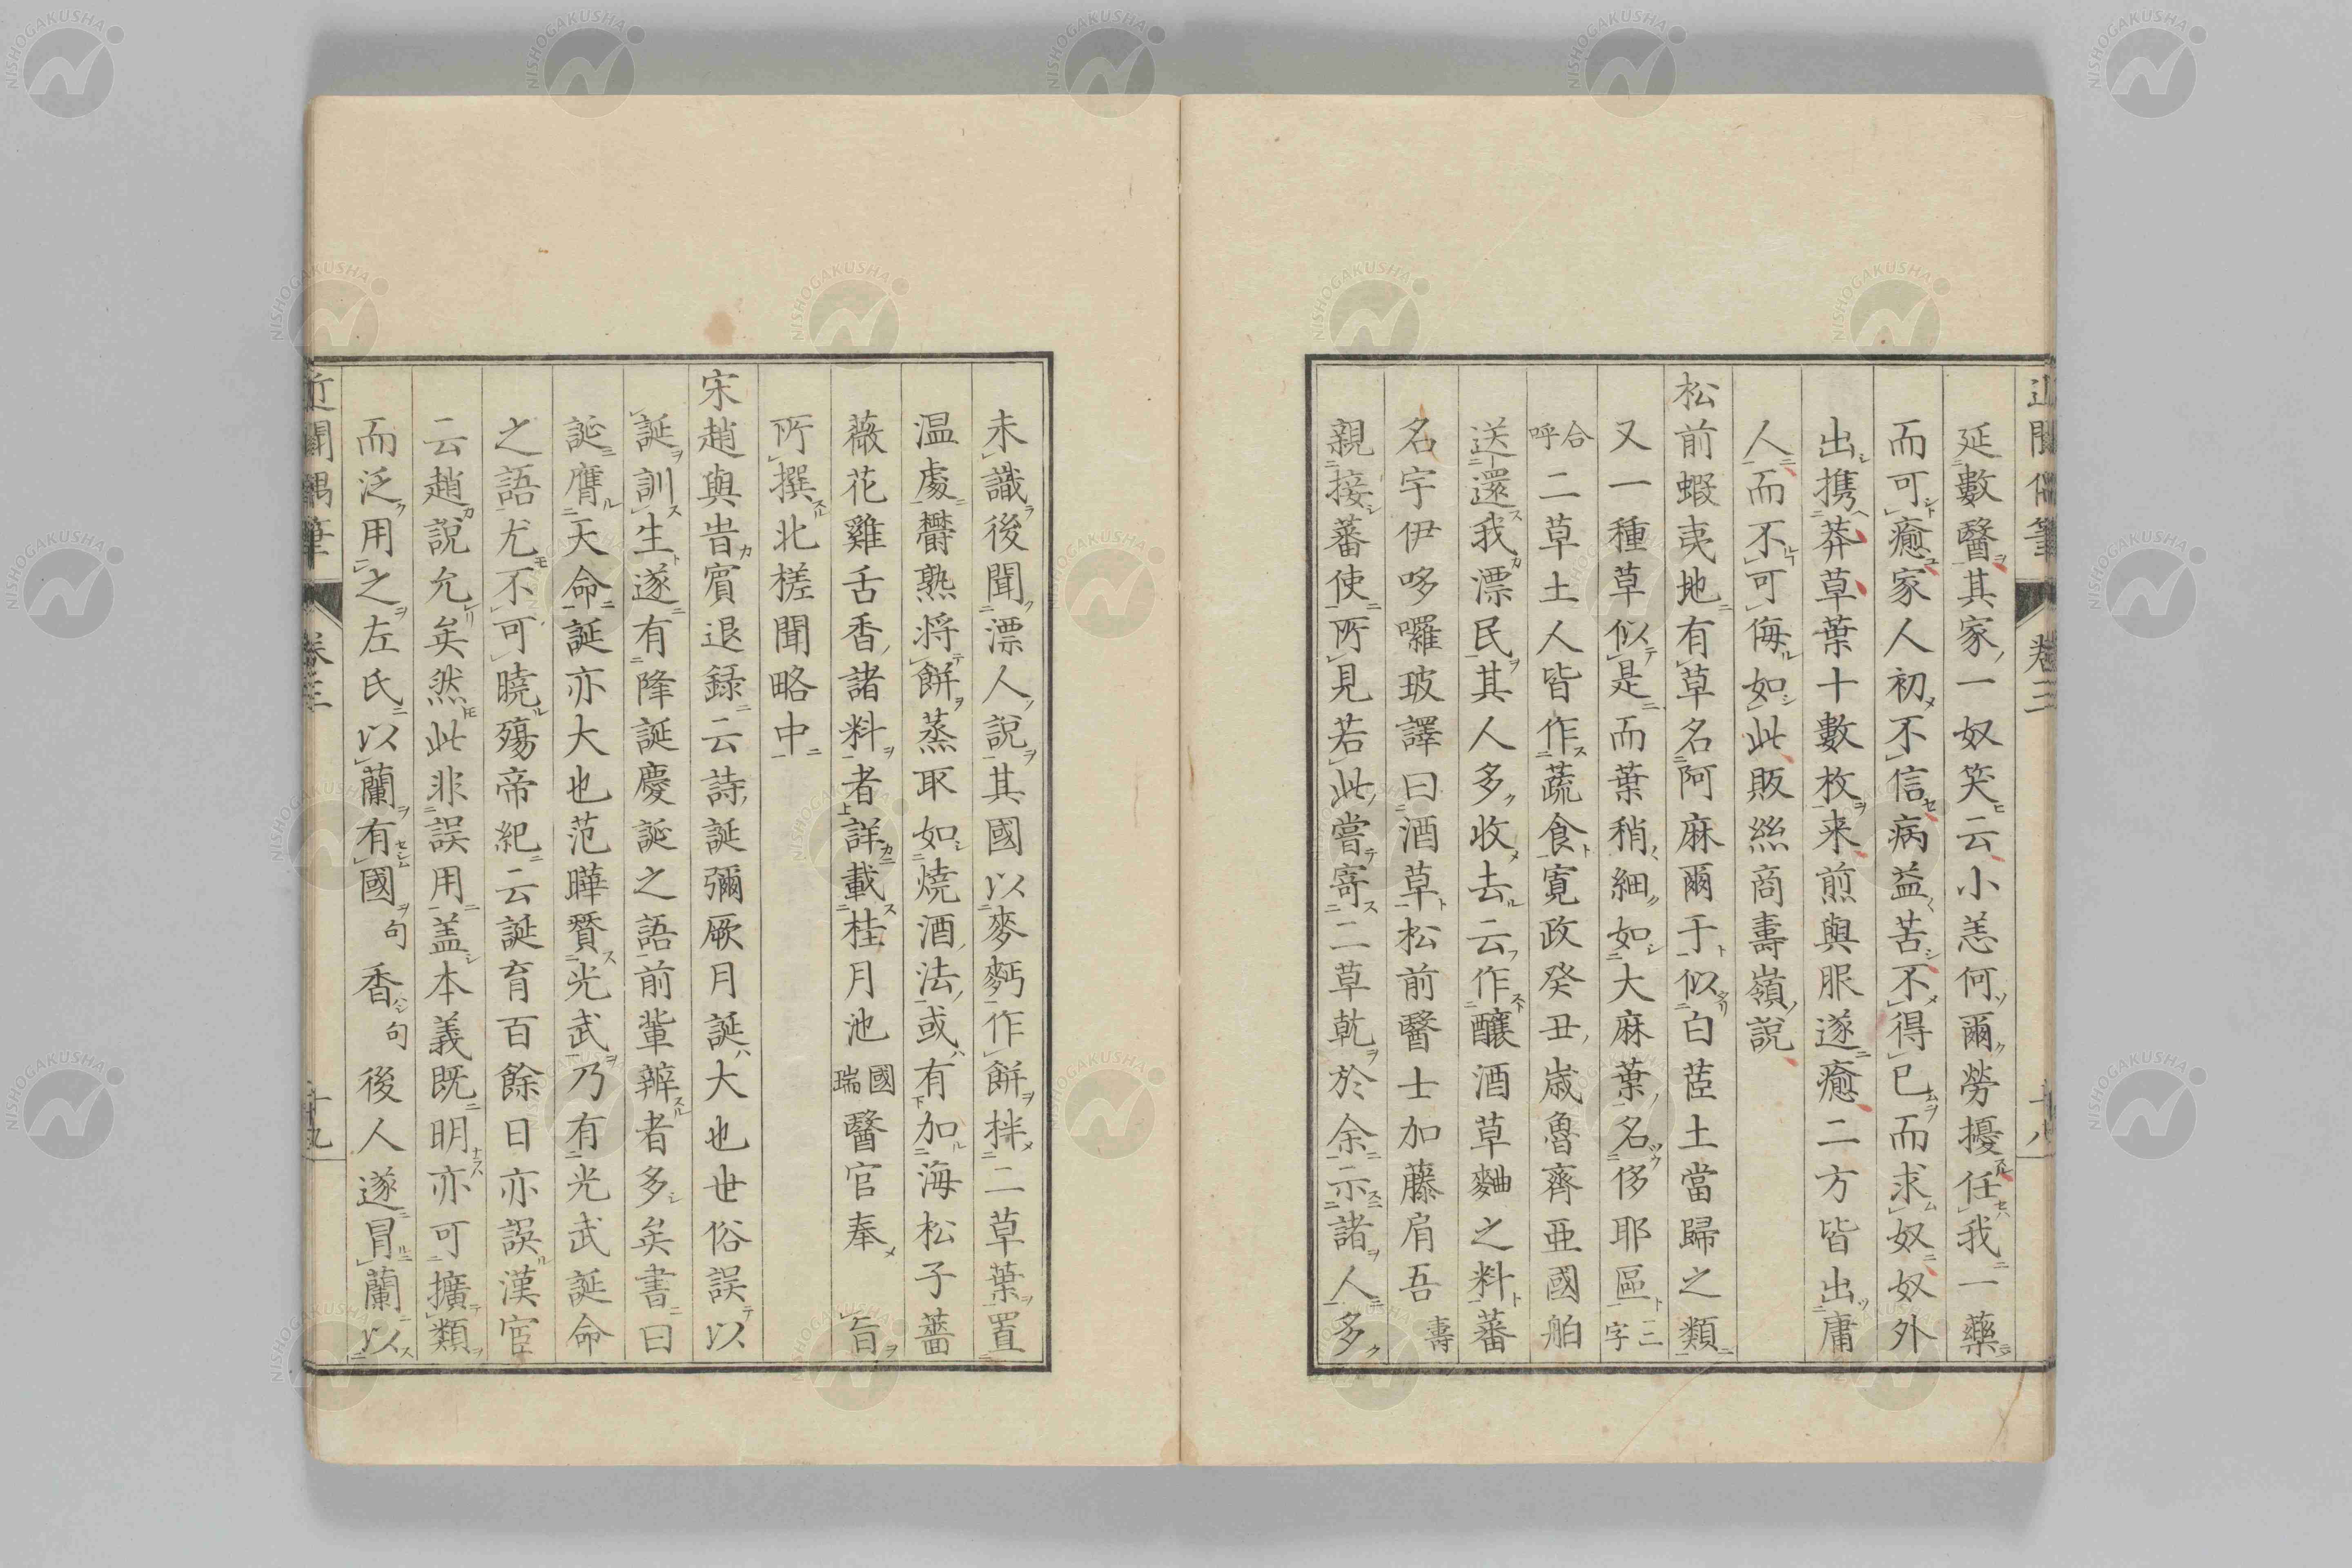 近聞偶筆 卷三 十八
延數醫其家一奴笑云小恙何爾勞擾任我一藥
而可癒家人初不信病益苦不得已而求奴奴外
出携莽草葉十數枚来煎與服遂癒二方皆出庸
人而不可侮如此販絲商壽嶺說
松前蝦夷地有草名阿麻爾于似白茝土當歸之類
又一種草似是而葉稍細如大麻葉名侈耶區二字
合呼二草土人皆作蔬食寛政癸丑歳魯齊亜國舶
送還我漂民其人多收去云作釀酒草麯之料蕃
名宇伊哆囉玻譯曰酒草松前醫士加藤肩吾壽
親接蕃使所見若此嘗寄二草乾於余示諸人多
未識後聞漂人說其國以麥麪作餅拌二草葉置
温處欝熟将餅蒸取如燒酒法或有加海松子薔
薇花雞舌香諸料者詳載桂月池國瑞醫官奉旨
所撰北槎聞略中
宋趙與旹賓退録云詩誕彌厥月誕大也世俗誤以
誕訓生遂有降誕慶誕之語前輩辨者多矣書曰
誕膺天命誕亦大也范曄賛光武乃有光武誕命
之語尤不可曉殤帝紀云誕育百餘日亦誤漢宦
云趙說允矣然此非誤用盖本義既明亦可擴類
而泛用之左氏以蘭有國句香句後人遂冒蘭以
近聞偶筆 卷三 十九